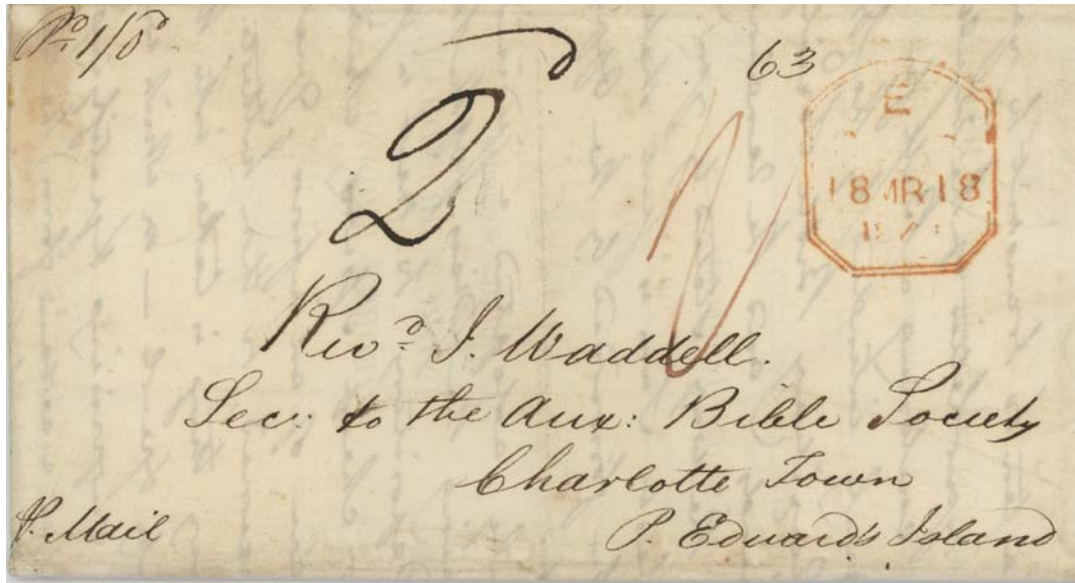 Pd 1/0d
2d
63
E
18 MR 18
Revd J. Waddell.
Sec: to the Aux: Bible Society
Charlotte Town
P. Edward's Island
P. Mail